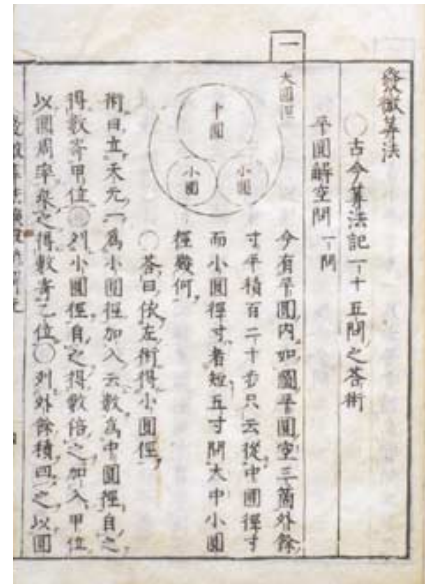 發微算法
○古今算法記一十五問之荅術
平圓解空問 一問
一
大圓徑
中圓
小圓
小圓
今有平圓内如圖平圓空三箇外餘
寸平積百二十歩只云從中圓徑寸
而小圓徑寸者短五寸問大中小圓
徑幾何
○荅曰依左術得小圓徑
術曰立天元一爲小圓徑加入云數爲中圓徑自之
得數寄甲位○列小圓徑自之得數倍之加入甲位
以圓周率乗之得數寄乙位○列外餘積四之以圓